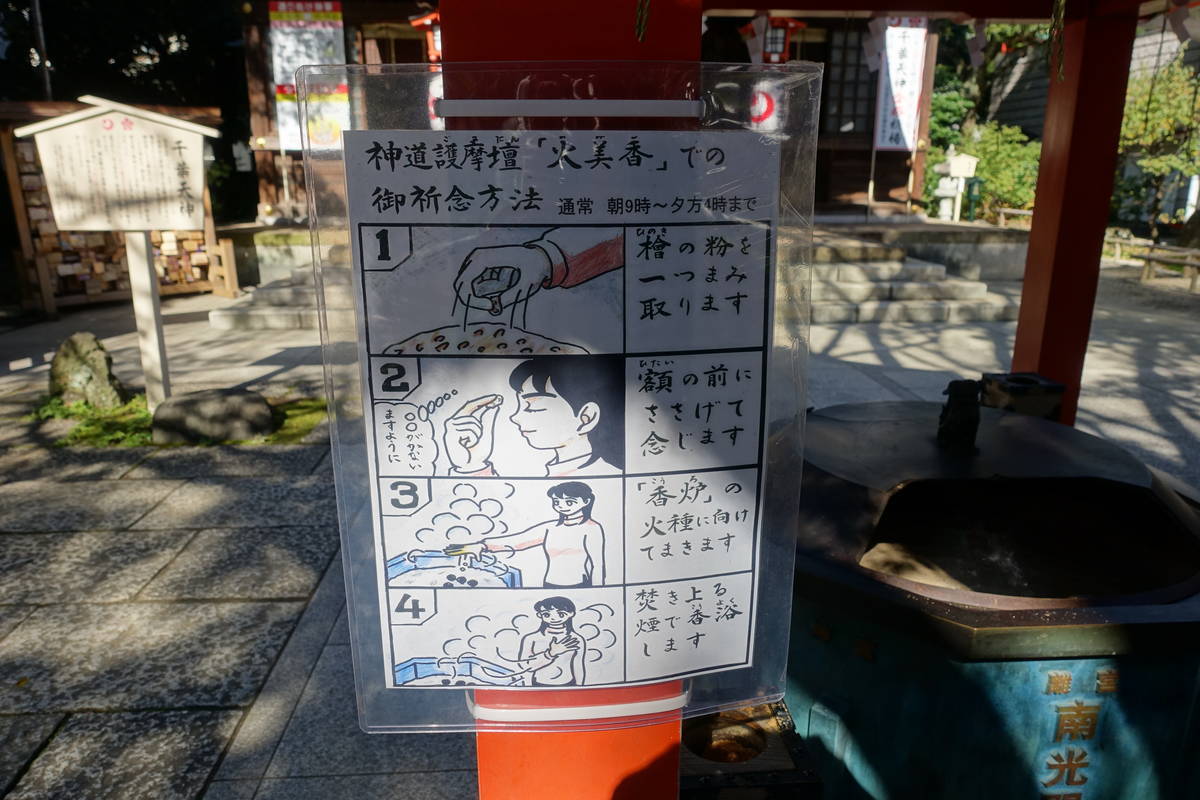 千葉天神
千葉天神
神道護摩壇「火美香」での
御祈念方法 通常 朝9時～夕方4時まで
1
檜の粉を
一つまみ
取ります
2
○○がかない
ますように
額の前に
ささげて
念じます
3
「香炉」の
火種に向け
てまきます
4
焚き上る
煙で香浴
します
南光